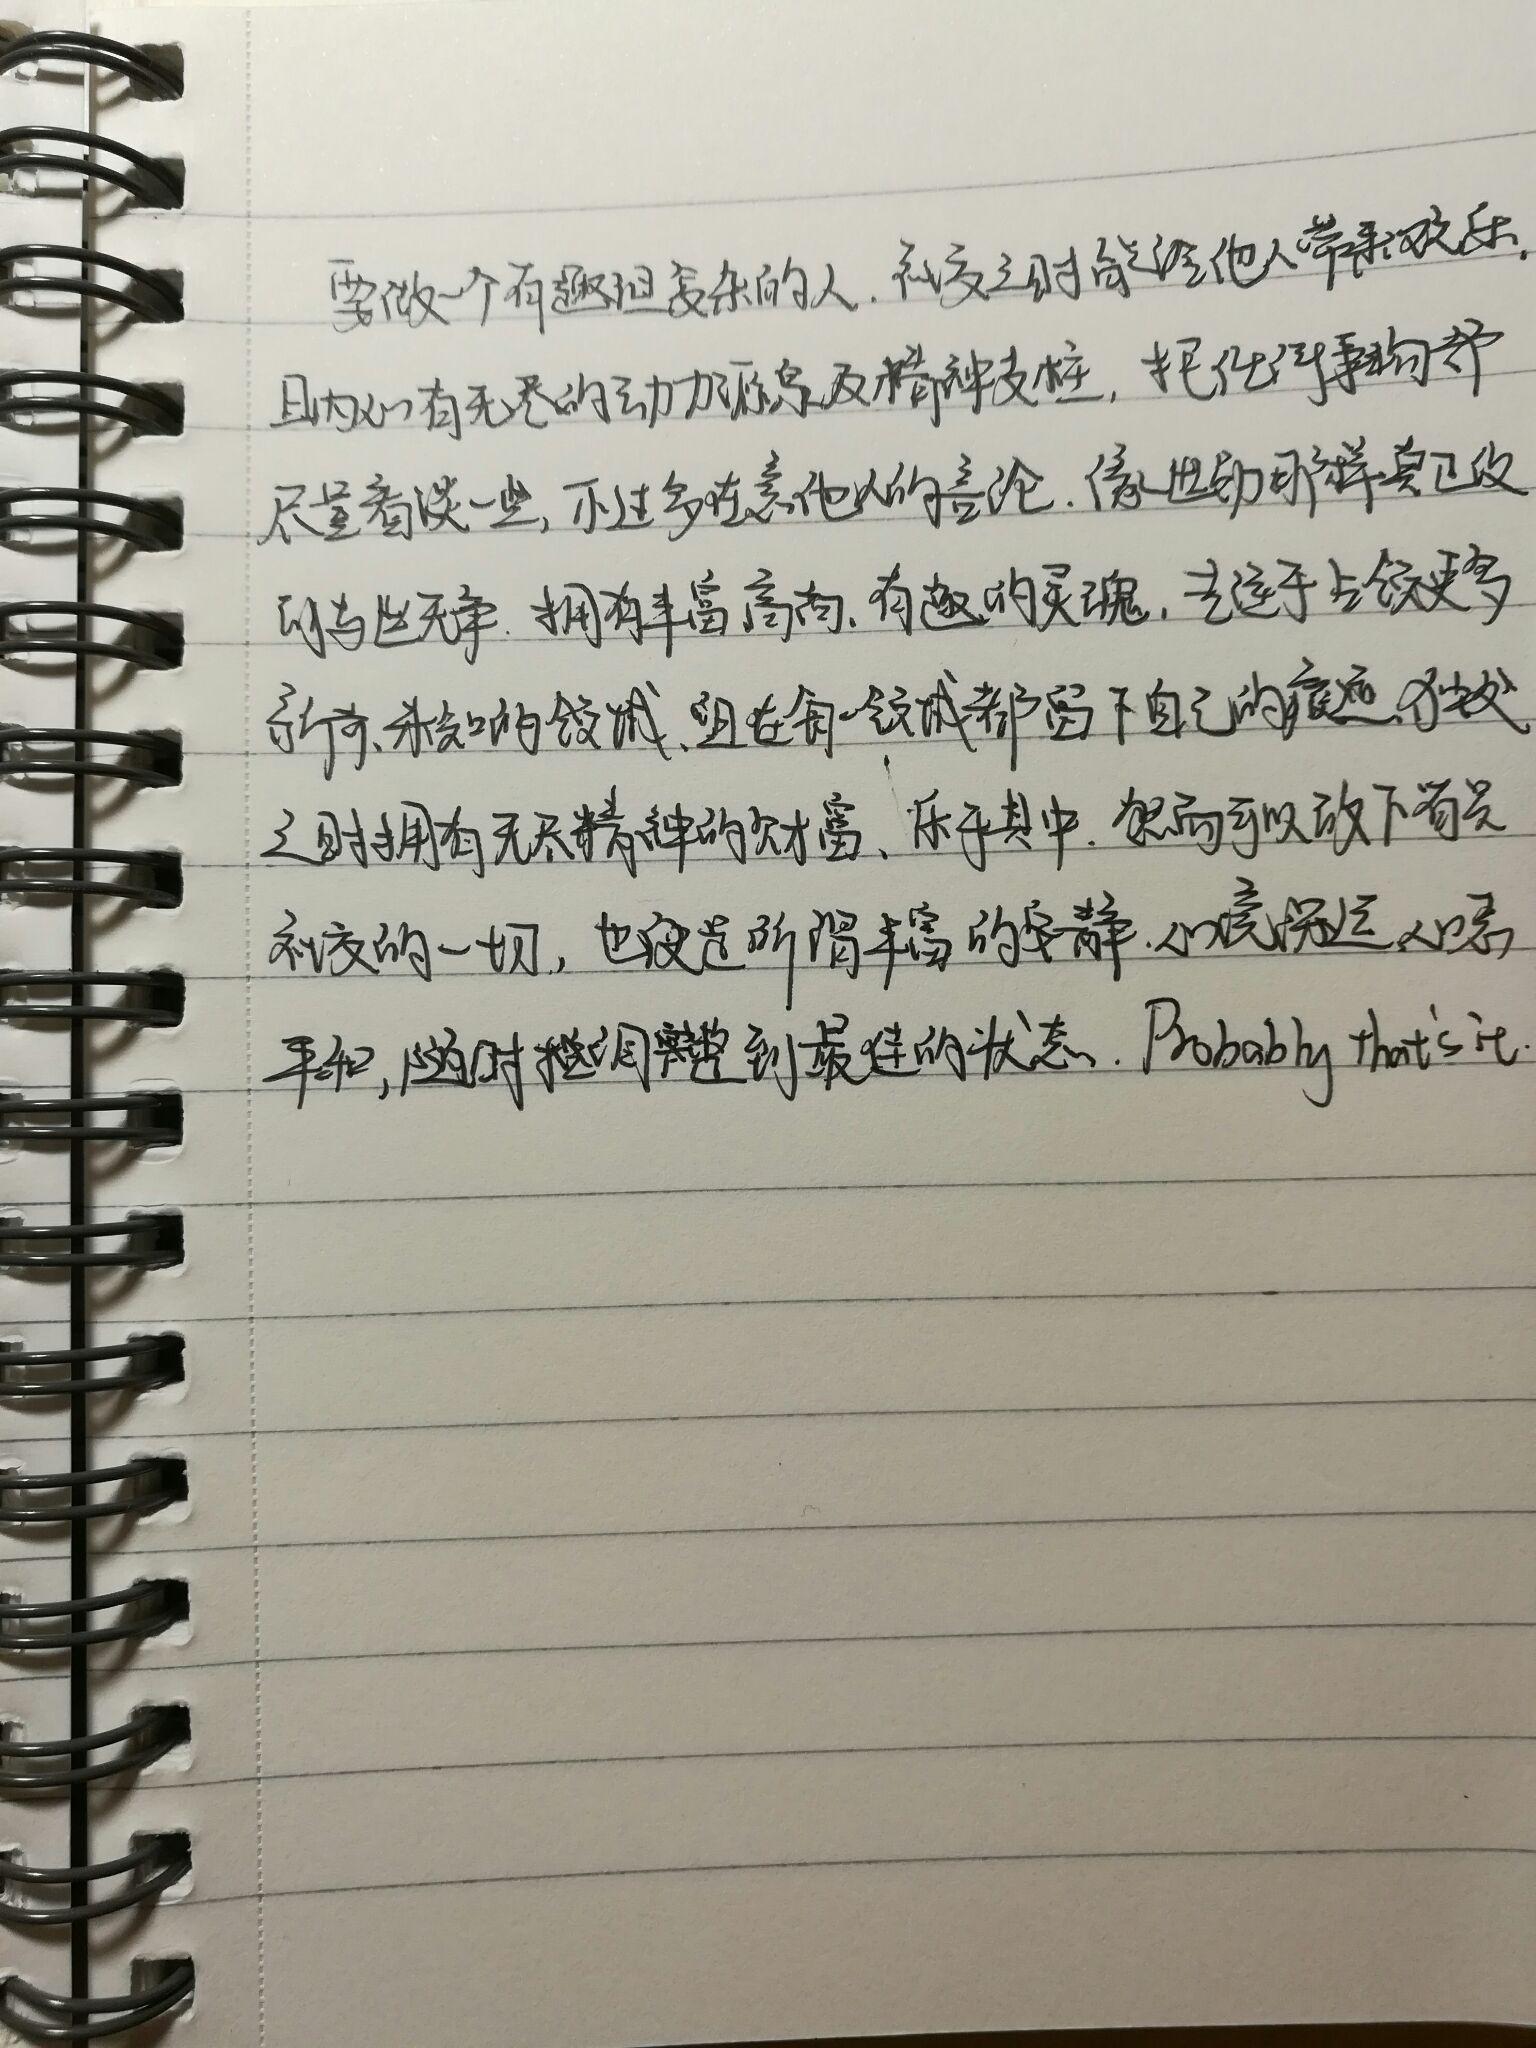 要做一个有趣但复杂的人。社交之时能给他人带来欢乐,
且内心有无尽的动力源泉及精神支柱,把任何事物都
尽量看淡一些,不过多在意他人的言论。像世勋那样真正做
到与世无争。拥有丰富高尚、有趣的灵魂,去逐于占领更多
新奇、未知的领域、且在每一领域都留下自己的痕迹。独处
之时拥有无尽精神的财富、乐乎其中。然而可以放下有关
社交的一切,也便是所谓丰富的安静。心境深远、心系
平和,随时把调整到最佳的状态. Probably that's it.